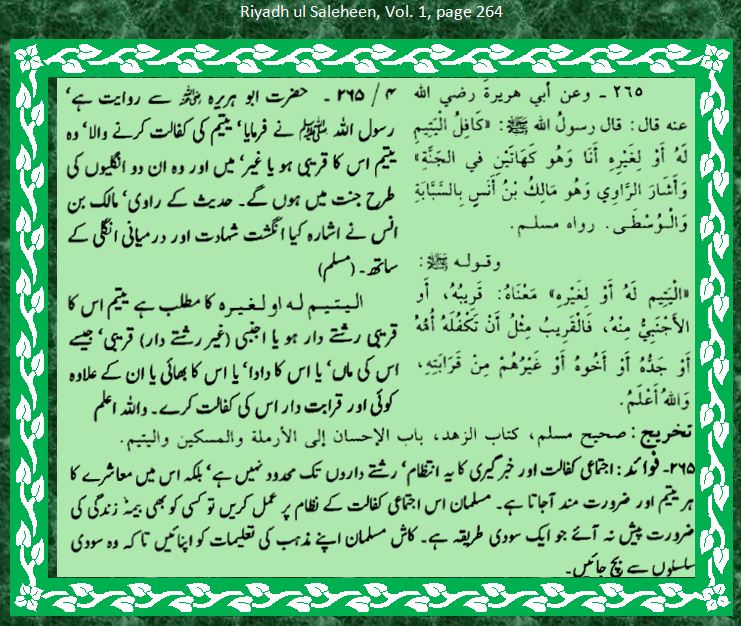 Riyadh ul Saleheen, Vol. 1, page 264
٢٦٥ ـ وعن أبي هريرةَ رضي الله
عنه قال: قال رسولُ الله ﷺ: «كَافِلُ الْيَتِيمِ
لَهُ أَوْ لِغَيْرِهِ أَنَا وَهُوَ كَهَاتَيْنِ في الجَنَّةِ»
وَأَشَارَ الرَّاوِي وَهُوَ مَالِكُ بْنُ أَنَسٍ بِالسَّبَّابَةِ
وَالْوُسْطَى. رواه مسلم.
وقوله ﷺ:
«الْيَتِيم لَهُ أَوْ لِغَيْرِهِ» مَعْنَاهُ: قَرِيبُهُ، أَوِ
الأَجْنَبِيُّ مِنْهُ، فَالْقَرِيبُ مِثْلُ أَنْ تَكْفُلَهُ أُمُّهُ
أَوْ جَدُّهُ أَوْ أَخُوهُ أَوْ غَيْرُهُمْ مِنْ قَرَابَتِهِ،
وَاللهُ أَعْلَمُ.
۴ / ۲۶۵ ۔ حضرت ابو ہریرہ ؓ سے روایت ہے‘
رسول اللہ ﷺ نے فرمایا‘ یتیم کی کفالت کرنے والا‘ وہ
یتیم اس کا قریبی ہو یا غیر‘ میں اور وہ ان دو انگلیوں کی
طرح جنت میں ہوں گے۔ حدیث کے راوی‘ مالک بن
انس نے اشارہ کیا انگشت شہادت اور درمیانی انگلی کے
ساتھ۔ (مسلم)
الیتیم لہ او لغیرہ کا مطلب ہے یتیم اس کا
قریبی رشتے دار ہو یا اجنبی (غیر رشتے دار) قریبی‘ جیسے
اس کی ماں‘ یا اس کا دادا‘ یا اس کا بھائی یا ان کے علاوہ
کوئی اور قرابت دار اس کی کفالت کرے۔ واللہ اعلم
تخريج: صحيح مسلم، كتاب الزهد، باب الإحسان إلى الأرملة والمسكين واليتيم.
۲۶۵- فوائد: اجتماعی کفالت اور خبر گیری کا یہ انتظام‘ رشتے داروں تک محدود نہیں ہے‘ بلکہ اس میں معاشرے کا
ہر یتیم اور ضرورت مند آجاتا ہے۔ مسلمان اس اجتماعی کفالت کے نظام پر عمل کریں تو کسی کو بھی بیمۂ زندگی کی
ضرورت پیش نہ آئے جو ایک سودی طریقہ ہے۔ کاش مسلمان اپنے مذہب کی تعلیمات کو اپنائیں تاکہ وہ سودی
سلسلوں سے بچ جائیں۔